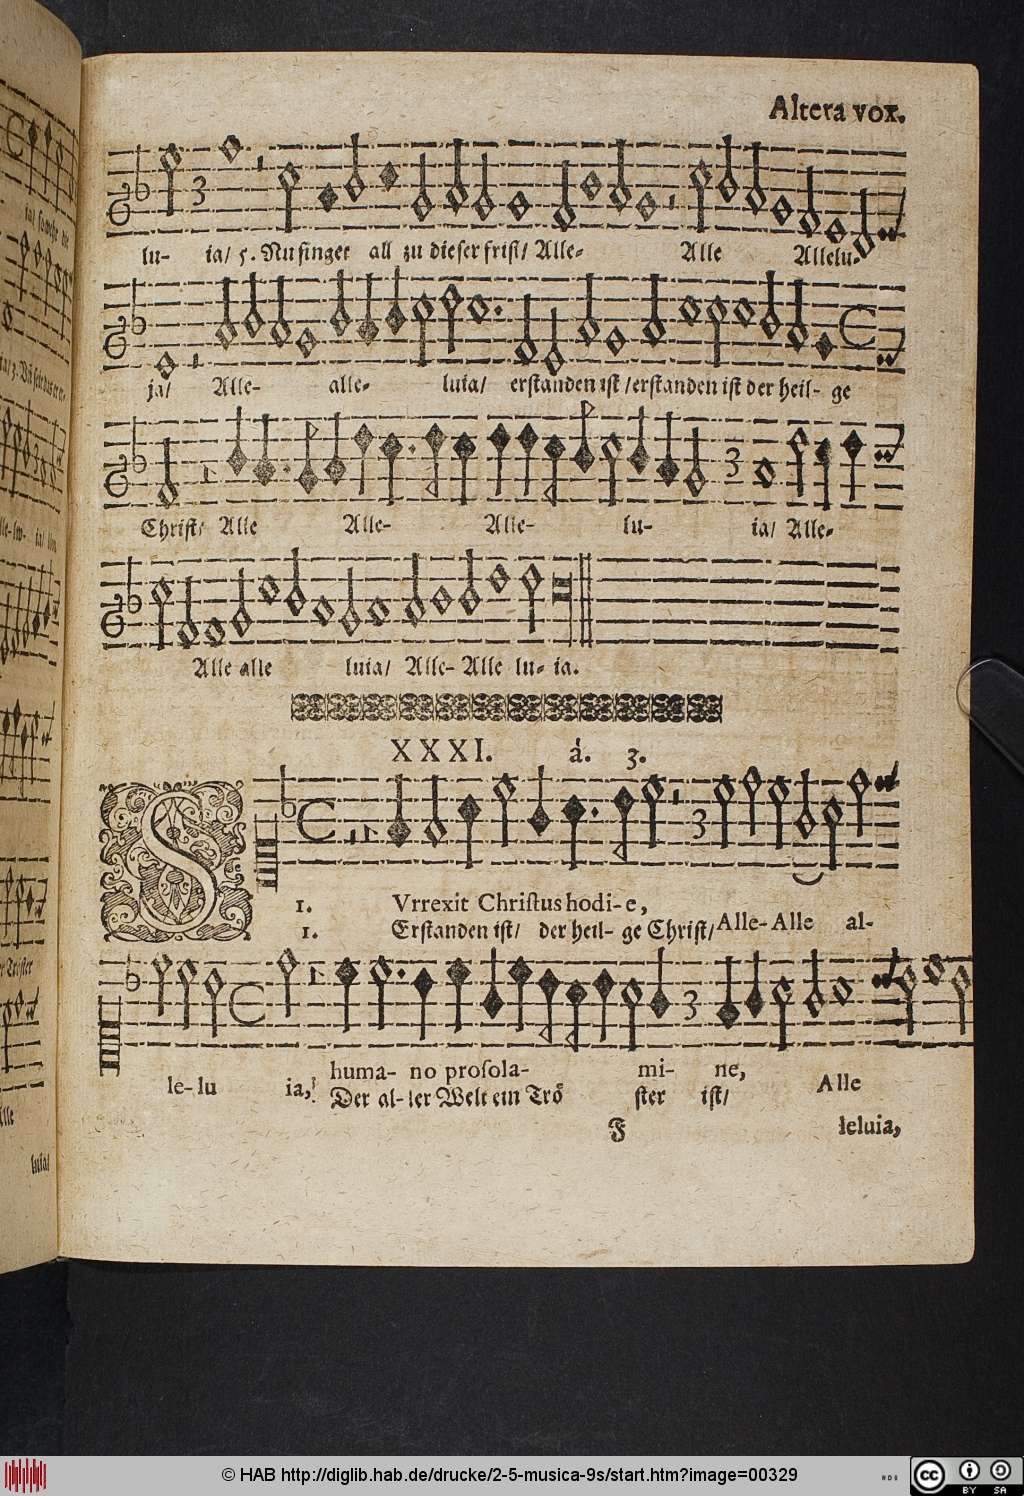 Altera vox.
lu- ia/ 5. Nu singet all zu dieser frist/ Alle- Alle Allelu-
ja/ Alle- alle- luia/ erstanden ist /erstanden ist der heil- ge
Christ/ Alle Alle- Alle- lu- ia/ Alle-
Alle alle luia/ Alle- Alle lu- ia.
XXXI. á. 3.
S
1. Vrrexit Christus hodi- e,
1. Erstanden ist/ der heil- ge Christ/ Alle- Alle al-
le- lu ia, huma- no prosola- mi- ne,
Der al- ler Welt ein Trö ster ist/ Alle
F leluia,
© HAB http://diglib.hab.de/drucke/2-5-musica-9s/start.htm?image=00329
cc BY SA